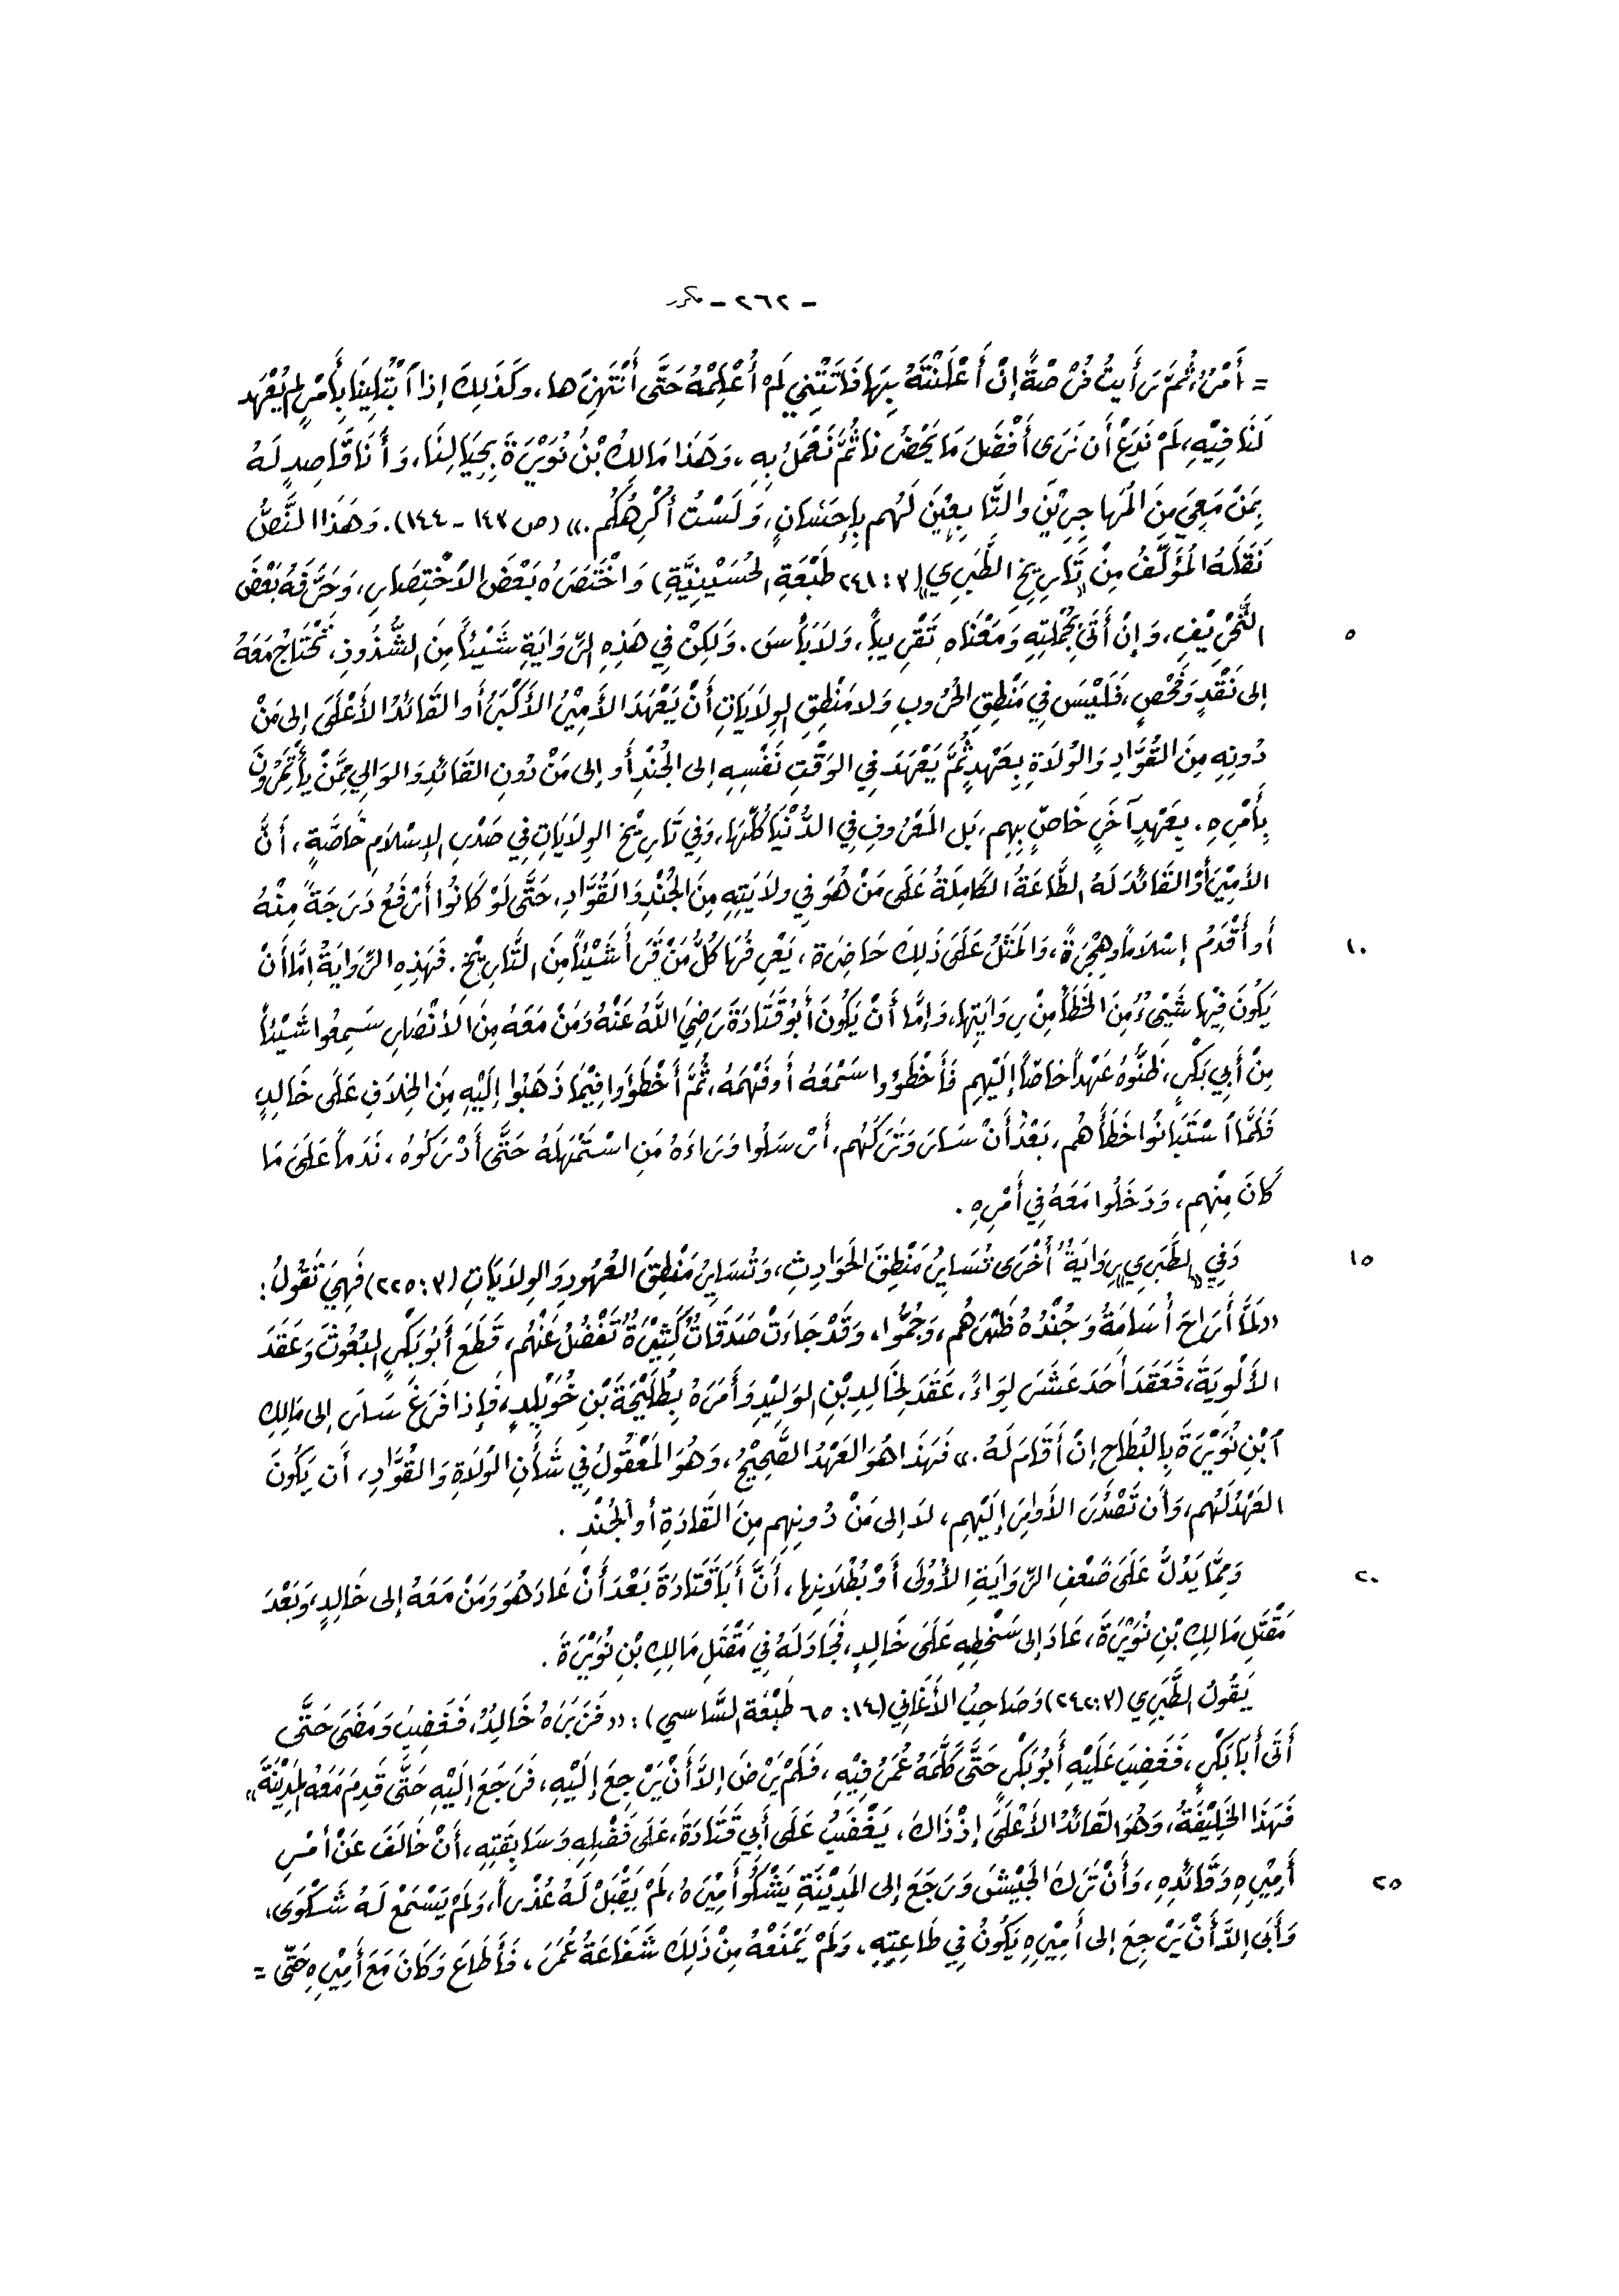 - ٢٦٢ - مكرر
= أَمْرٌ، ثُمَّ رَأَيتُ فُرْصَةً إِنْ أَعْلَنْتَهُ بِهَا فَاتَتْنِي لَمْ أُعْلِمْهُ حَتَّى أَنْتَهِزَها، وكَذَلِكَ إذا ٱبْتُلِينَا بِأَمْرٍ لم يُعْهَد
لَنَا فِيْهِ، لَمْ نَدَعْ أَن نَرَى أَفْضَلَ مَا يَحْضُرُنا ثُمَّ نَعْمَلُ بِهِ، وَهَذَا مَالِكُ بْنُ نُوَيْرَةَ بِحِيَالِنَا، وَأَنَا قَاصِدٍ لَهُ
بِمَنْ مَعِيَ مِنَ المُهاجِرِيْنَ والتَّابِعِيْنَ لَهُم بِإِحْسَانٍ، وَلَسْتُ أُكْرِهُكُم.» (ص ١٤٣ - ١٤٤). وَهَذا النَّصُّ
نَقَلَهُ المُؤَلِّفُ مِنْ «تَارِيخِ الطَّبَرِي» (٣: ٢٤١ طَبْعَةِ الحُسَيْنِيَّةِ) وَاخْتَصَرُه بَعْضَ الأخْتِصَارِ، وَحَرَّفَهُ بَعْضَ
التَّحْرِيْفِ، وَإنْ أَتَى بِجُمْلَتِهِ وَمَعْنَاه تَقْرِيباً، وَلَا بَأْسَ. وَلَكِنْ فِي هَذِهِ الرِّوَايَةِ شَيْئاً مِنَ الشُّذُوذِ، نَحْتَاجُ مَعَهُ
٥
إلى نَقْدٍ وَفَحْصٍ، فَلَيْسَ فِي مَنْطِقِ الحُرُوبِ وَلا مَنْطِقِ الوِلَايَاتِ أَنْ يَعْهَدَ الأَمِيْرُ الأَكْبَرُ أَو القَائدُ الأَعْلَى إلى مَنْ
دُونِهِ مِنَ القُوَّادِ وَالوُلَاةِ بِعَهْدٍ ثُمَّ يَعْهَدَ فِي الوَقْتِ نَفْسِهِ إلى الجُنْدِ أَو إلى مَنْ دُونِ القَائدِ وَالوَالِي مِمَّنْ يَأْتَمِرُونَ
بِأَمْرِهِ. بِعَهْدٍ آخَرٍ خَاصٍّ بِهِم، بَل المَعْرُوفِ فِي الدُّنْيَا كُلِّهَا، وَفِي تَارِيْخ الوِلَايَاتِ فِي صَدْرِ الإسْلَامِ خَاصَّةٍ، أَنَّ
الأَمِيْرَ أَوْ القَائدَ لَهُ الطَّاعَةُ الكَامِلَةُ عَلَى مَنْ هُوَ فِي ولاَيَتِهِ مِنَ الجُنْدِ وَالقُوَّادِ، حَتَّى لَوْ كَانُوا أَرْفَعُ دَرَجَةً مِنْهُ
أَو أَقْدَمُ إسْلَاماً وهِجْرَةً، وَالمَثَلُ عَلَى ذَلِكَ حَاضِرَة، يَعْرِفُهَا كُلُّ مَنْ قَرَأَ شَيْئاً مِنَ التَّارِيْخ. فَهَذِهِ الرِّوَايَةُ إمَّا أَنْ
١٠
يَكُونَ فِيْها شَيْىءٌ مِنَ الخَطَأ مِنْ رِوَايَتِها، وَإمَّا أَنْ يَكُونَ أَبُو قَتَادَةَ رَضِيَ اللَّهُ عَنْهُ وَمَنْ مَعَهُ مِنَ الأَنْصَارِ سَمِعُوا شَيْئاً
مِنْ أَبِي بَكْرٍ، ظَنُّوهُ عَهْداً خاصّاً إلَيْهِم فَأَخْطَؤُوا سَمْعَهُ أَو فَهْمَهُ، ثُمَّ أَخْطَؤُوا فِيْمَا ذَهَبُوا إلَيْهِ مِنَ الخِلَافِ عَلَى خَالِدٍ،
فَلَمَّا ٱسْتَبَانُوا خَطَأَهُم، بَعْدَ أَنْ سَارَ وَتَرَكَهُم، أَرْسَلُوا وَرَاءَهُ مَنِ اسْتَمْهَلَهُ حَتَّى أَدْرَكُوهُ، نَدَماً عَلَى مَا
كَانَ مِنْهِم، وَدَخَلُوا مَعَهُ فِي أَمْرِهِ.
وَفِي «الطَّبَرِي» رِوَايَةٌ أُخْرَى تُسَايِرُ مَنْطِقَ الحَوَادِثِ، وَتُسَايِرُ مَنْطِقَ العُهُودِ وَالوِلايَاتِ (٣: ٢٢٥) فَهِيَ تَقُولُ:
١٥
«لَمَّا أَرَاحَ أُسَامَةُ وَجُنْدُهُ ظَهْرَهُم، وَجُمُّوا، وَقَدْ جَاءَتْ صَدَقَاتٌ كَثِيْرَةٌ تَفْضُلُ عَنْهُم، قَطَعَ أَبُو بَكْرٍ البُعُوثَ وَعَقَدَ
الأَلْوِيَةَ، فَعَقَدَ أَحَدَ عَشَرَ لِوَاءً، عَقَدَ لِخَالِدِ بْنِ الوَلِيْدِ وَأَمَرَهُ بِطُلَيْحَةَ بْنِ خُوَيْلِدٍ، فَإذا فَرَغَ سَارَ إلى مَالِكِ
ٱبْنِ نُوَيْرَةَ بِالبُطَاحِ إنْ أَقَامَ لَهُ.» فَهَذَا هُوَ العَهْدُ الصَّحِيْحُ، وَهُوَ المَعْقُولُ فِي شَأْنِ الوُلَاةِ وَالقُوَّادِ، أَن يَكُونَ
العَهْدُ لَهُم، وَأَن تَصْدُرَ الأَوامِرَ إلَيْهِم، لَا إلى مَنْ دُونِهِم مِنَ القَادَةِ أَو الجُنْدِ.
وَمِمَّا يَدُلُّ عَلَى ضَعْفِ الرِّوَايَةِ الأُوْلَى أَوْ بُطْلَانِها، أَنَّ أَبَا قَتَادَةَ بَعْدَ أَنْ عَادَ هُوَ وَمَنْ مَعَهُ إلى خَالِدٍ، وَبَعْدَ
٢٠
مَقْتَلِ مَالِكِ بْنِ نُوَيْرَةَ، عَادَ إلى سَخْطِهِ عَلَى خَالِدٍ، فَجَادَلَهُ فِي مَقْتَلِ مَالِكِ بْنِ نُوَيْرَةَ.
يَقُولُ الطَّبَرِي (٣: ٢٤٢) وَصَاحِبُ الأَغَانِي (١٤: ٦٥ طَبْعَة السَّاسي): «فَزَبَرَهُ خَالِدُ، فَغَضِبَ وَمَضَى حَتَّى
أَتَى أَبَا بَكْرٍ، فَغَضِبَ عَلَيْهِ أَبُو بَكْرٍ حَتَّى كَلَّمَهُ عُمَرُ فِيْهِ، فَلَمْ يَرْضَ إلاَّ أَنْ يَرْجِعَ إلَيْهِ، فَرَجَعَ إلَيْهِ حَتَّى قَدِمَ مَعَهُ المَدِيْنَةَ»
فَهَذَا الخَلِيْفَةُ، وَهُوَ القَائدُ الأَعْلَى إذْ ذَاكَ، يَغْضَبُ عَلَى أَبِي قَتَادَةَ، عَلَى فَضْلِهِ وَسَابِقَتِهِ، أَنْ خَالَفَ عَنْ أَمْرِ
أَمِيْرِهِ وَقَائدِهِ، وَأَنْ تَرَكَ الجَيْشَ وَرَجَعَ إلى المَدِيْنَةِ يَشْكُو أَمِيْرَهُ، لَمْ يَقْبَلْ لَهُ عُذْراً، وَلَمْ يَسْمَعْ لَهُ شَكْوَى،
٢٥
وَأَبَى إلاَّ أَنْ يَرْجِعَ إلى أَمِيْرِهِ يَكُونُ فِي طَاعِتِهِ، وَلَمْ يَمْنَعْهُ مِنْ ذَلِكَ شَفَاعَةُ عُمَرَ، فَأَطَاعَ وَكَانَ مَعَ أَمِيْرِهِ حَتَّى =